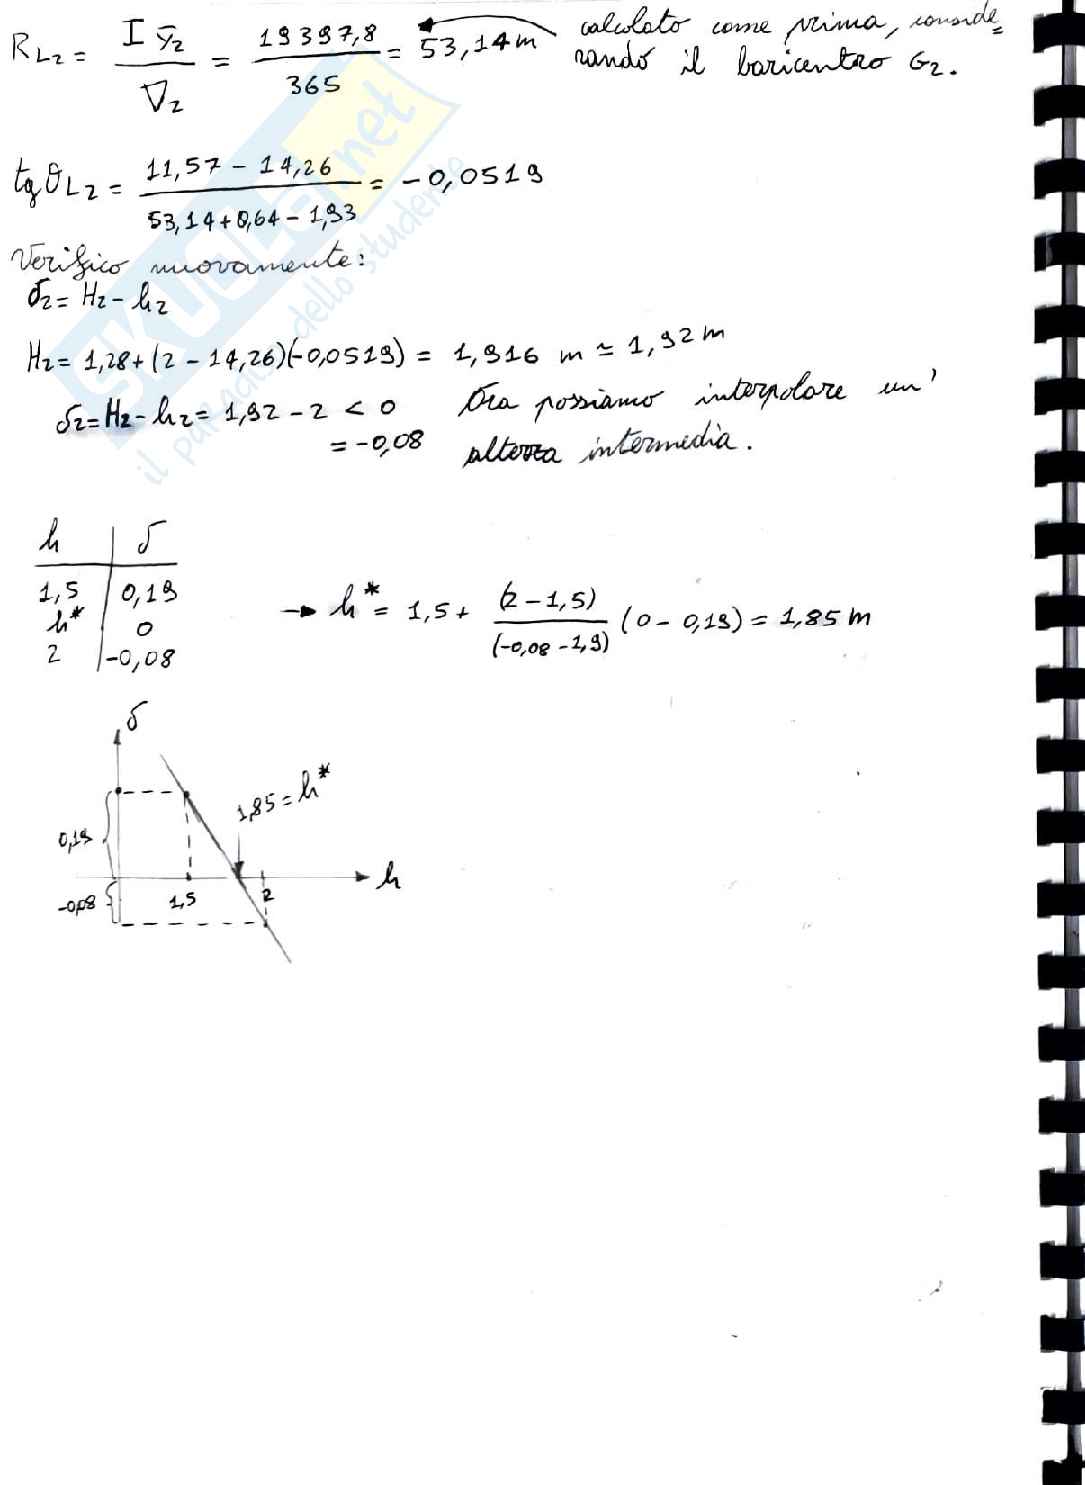 R_L2 = I ȳ₂ / ∇₂ = 19397,8 / 365 = 53,14 m calcolato come prima, conside=
rando il baricentro G₂.
tg θ_L2 = (11,57 - 14,26) / (53,14 + 0,64 - 1,93) = -0,0519
Verifico nuovamente:
δ₂ = H₂ - h₂
H₂ = 1,28 + (2 - 14,26)(-0,0519) = 1,916 m ≃ 1,92 m
δ₂ = H₂ - h₂ = 1,92 - 2 < 0 Ora possiamo interpolare un'
= -0,08 altezza intermedia.
h | δ
1,5 | 0,19
h* | 0
2 | -0,08
→ h* = 1,5 + (2 - 1,5) / (-0,08 - 1,9) (0 - 0,19) = 1,85 m
δ
1,85 = h*
0,19
h
-0,08
1,5
2
SKUOLA.net
il paradiso dello studente